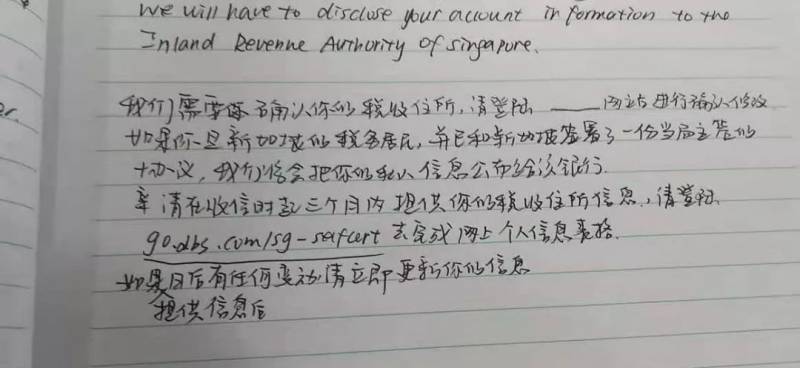 We will have to disclose your account information to the
Inland Revenue Authority of singapore.
我们需要你确认你的税收住所,请登陆 ____ 网站进行确认修改
如果你是新加坡的税务居民,并已和新加坡签署了一份当局主管的
协议,我们将会把你的私人信息公布给该银行.
请在收信时起三个月内提供你的税收住所信息,请登陆
go.dbs.com/sg-selfcert 去完成网上个人信息表格.
如果日后有任何变动请立即更新你的信息
提供信息后